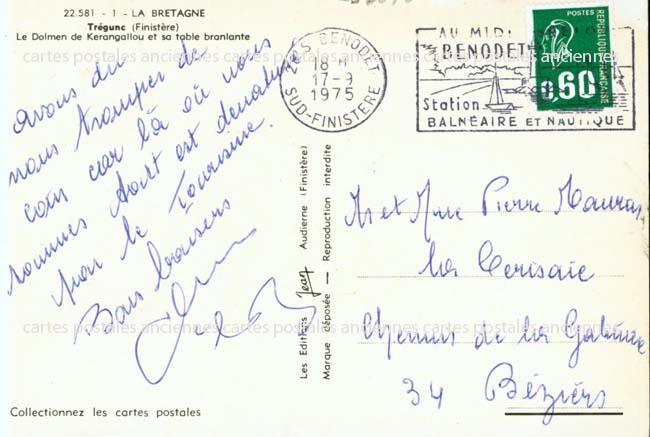 22.581 - 1 - LA BRETAGNE
Trégunc (Finistère)
Le Dolmen de Kerangallou et sa table branlante
avons du
nous tromper de
coin car là où nous
sommes tout est dénaturé
par le Tourisme.
Bons baisers
29 S BENODET
18 H
17-9
1975
SUD-FINISTERE
AU MIDI
BENODET
Station
BALNÉAIRE ET NAUTIQUE
POSTES
REPUBLIQUE FRANCAISE
0,60
Les Editions Jean Audierne (Finistère)
Marque déposée - Reproduction interdite
Mr et Mme Pierre
La Cerisaie
Chemin de la
34 Béziers
cartes postales anciennes cartes postales anciennes cartes postales anciennes cartes postales anciennes
cartes postales anciennes cartes postales anciennes cartes postales anciennes cartes postales anciennes
Collectionnez les cartes postales